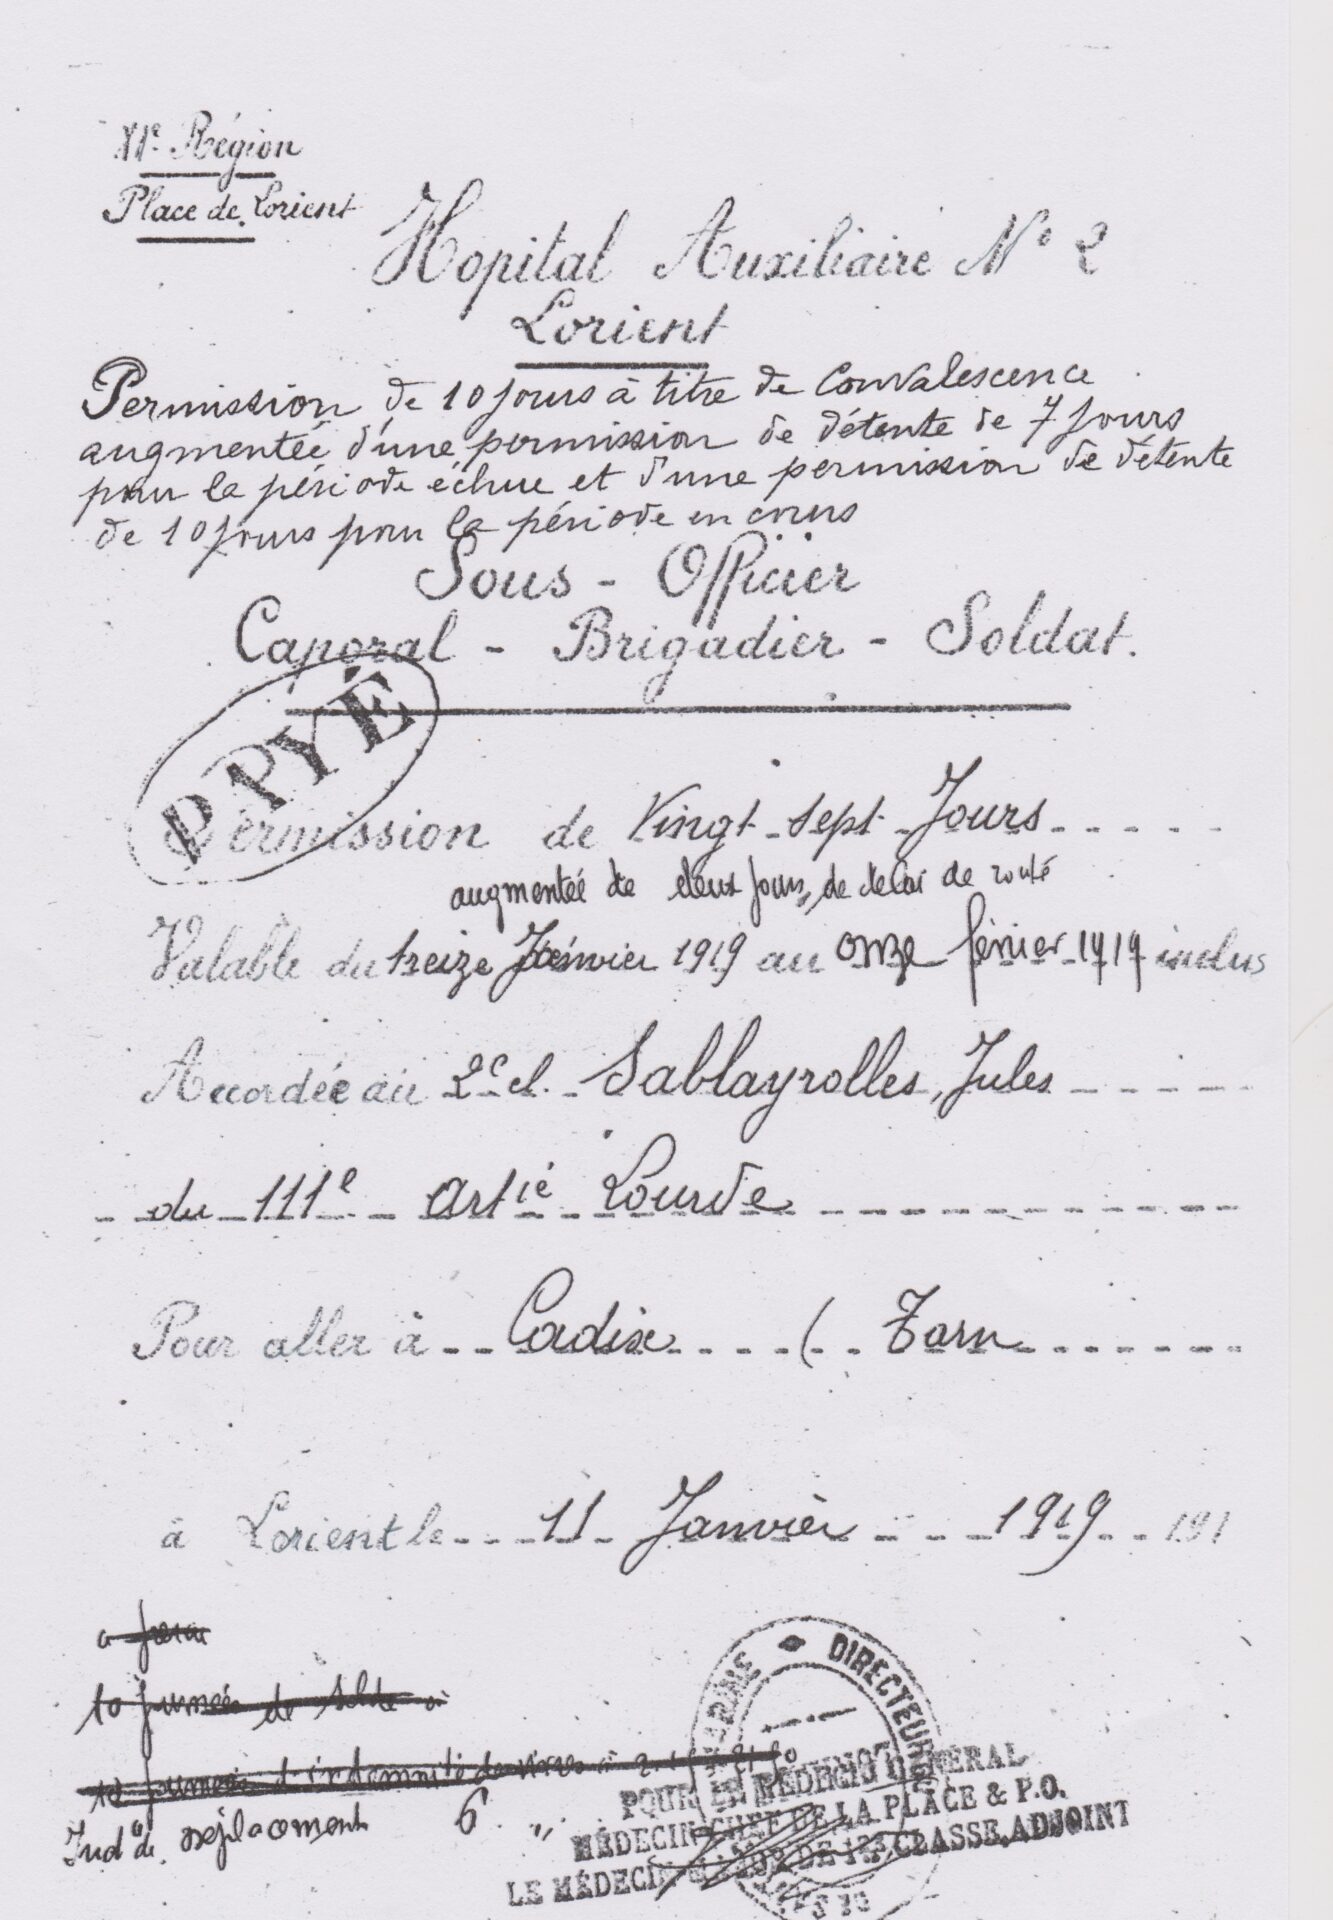 XIe Région
Place de Lorient
Hopital Auxiliaire No 2
Lorient
Permission de 10 Jours à titre de Convalescence
augmenteé d'une permission de détente de 7 Jours
pour la période échue et d'une permission de détente
de 10 Jours pour la période en cours
Sous - Officier
Caporal - Brigadier - Soldat.
PAYÉ
Permission de Vingt-sept-Jours
augmenteé de deux jours, de delai de route
Valable du treize Janvier 1919 au onze février 1919 inclus
Accordée au 2e cl. Sablayrolles, Jules
du 111e Artie Lourde
Pour aller à Cadix ( Tarn
à Lorient le 11 Janvier 1919 191
10 journées de solde à
10 journées d'indemnité de vivres à
Indté de déplacement 6 "
MARINE DIRECTEUR
POUR LE MÉDECIN GÉNÉRAL
MÉDECIN CHEF DE LA PLACE & P.O.
LE MÉDECIN MAJOR DE 1re CLASSE, ADJOINT